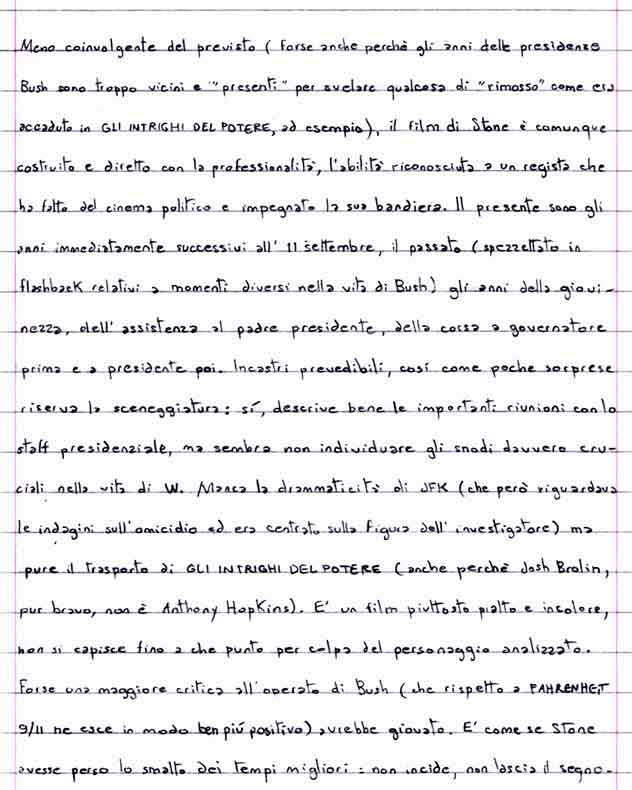 Meno coinvolgente del previsto (forse anche perchè gli anni delle presidenze
Bush sono troppo vicini e "presenti" per svelare qualcosa di "rimosso" come era
accaduto in GLI INTRIGHI DEL POTERE, ad esempio), il film di Stone è comunque
costruito e diretto con la professionalità, l'abilità riconosciuta a un regista che
ha fatto del cinema politico e impegnato la sua bandiera. Il presente sono gli
anni immediatamente successivi all' 11 settembre, il passato (spezzettato in
flashback relativi a momenti diversi nella vita di Bush) gli anni della giovi-
nezza, dell' assistenza al padre presidente, della corsa a governatore
prima e a presidente poi. Incastri prevedibili, così come poche sorprese
riserva la sceneggiatura: sì, descrive bene le importanti riunioni con lo
staff presidenziale, ma sembra non individuare gli snodi davvero cru-
ciali nella vita di W. Manca la drammaticità di JFK (che però riguardava
le indagini sull'omicidio ed era centrato sulla figura dell' investigatore) ma
pure il trasporto di GLI INTRIGHI DEL POTERE (anche perchè Josh Brolin,
pur bravo, non è Anthony Hopkins). E' un film piuttosto piatto e incolore,
non si capisce fino a che punto per colpa del personaggio analizzato.
Forse una maggiore critica all'operato di Bush (che rispetto a FAHRENHEIT
9/11 ne esce in modo ben più positivo) avrebbe giovato. E' come se Stone
avesse perso lo smalto dei tempi migliori: non incide, non lascia il segno.